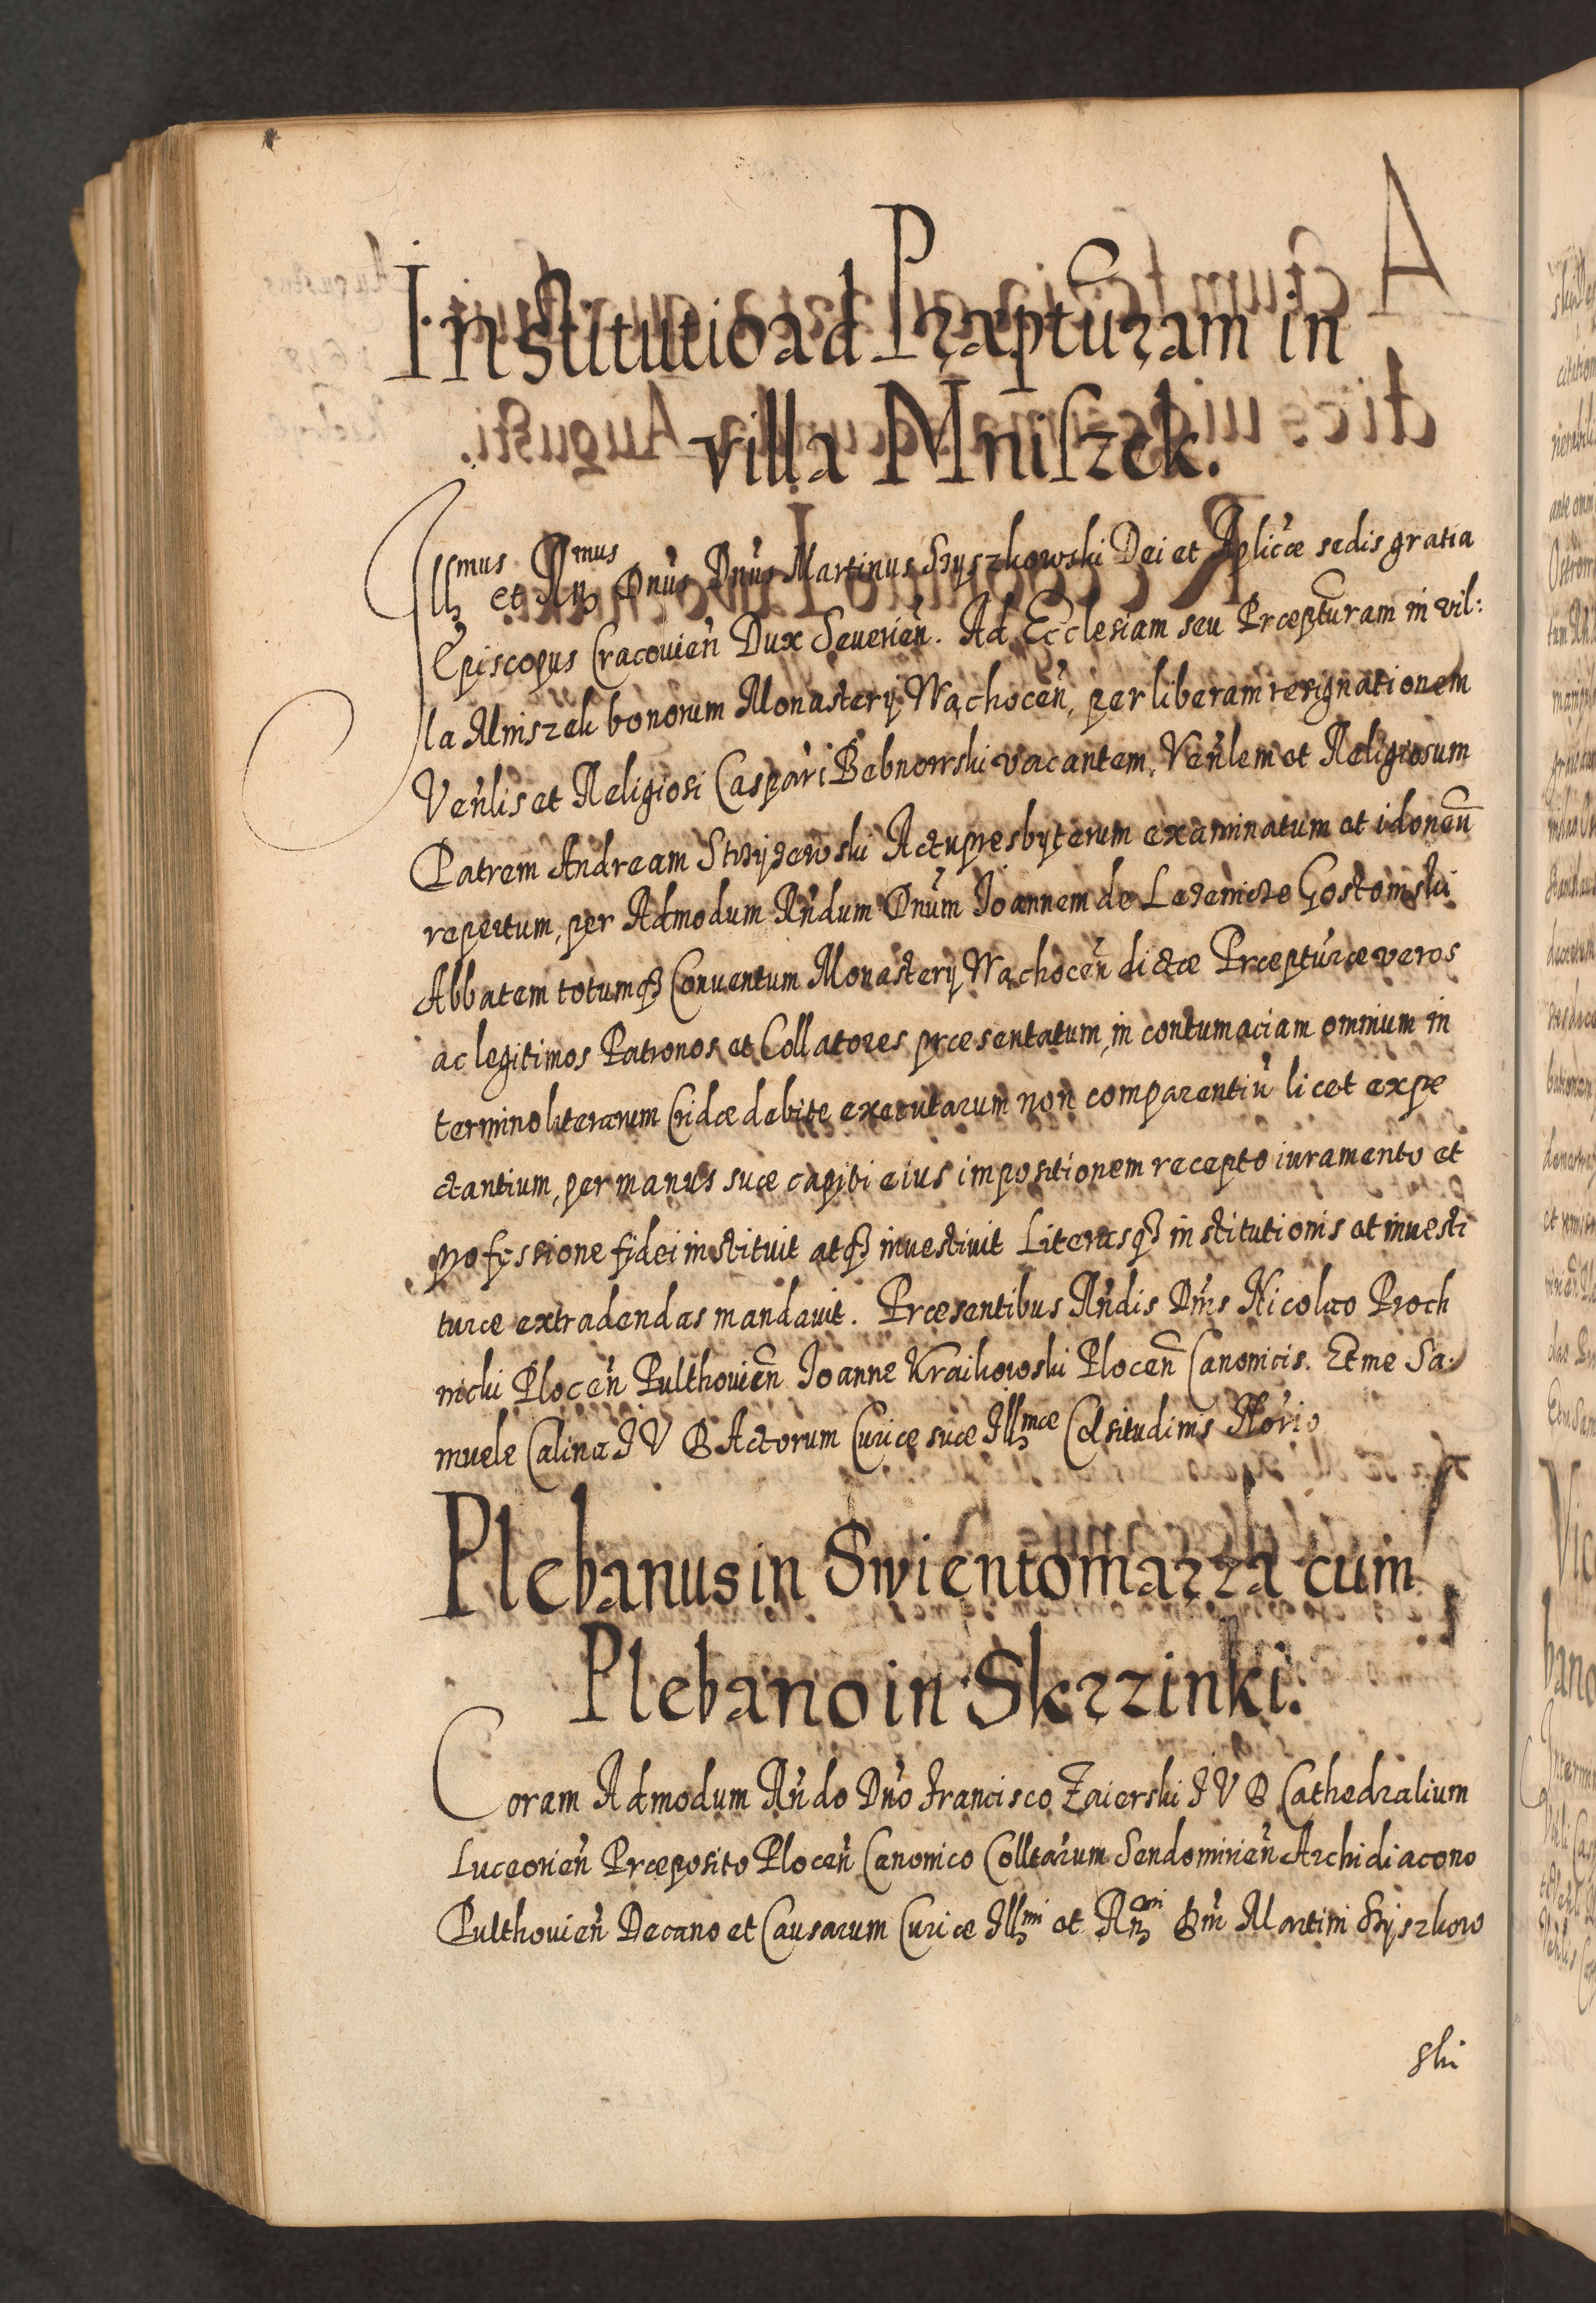 Institutio ad Præpturam in
villa Mniszek.
Illmus et Rnmus Dnus Dnus Martinus Szyszkowski Dei et Aplicæ sedis gratia
Episcopus Cracouien Dux Seuerien. Ad Ecclesiam seu Præpturam in vil:
la Mniszek bonorum Monastery Wąchocen, per liberam resignationem
Venlis et Religiosi Caspari Bebnowski vacantem, Venlem et Religiosum
Patrem Andream Strzyzewski Actu presbyterum examinatum et idoneu
repertum, per Admodum Rndum Dnum Joannem de Lezenicze Gostomski
Abbatem totumq Conventum Monastery Wąchocen dictæ Præpturæ veros
ac legitimos Patronos et Collatores præsentatum, in contumaciam omnium in
termino literarum Cridæ debite executarum non comparentiu licet expe
ctantium, per manus suæ capiti eius impositionem recepto iuramento et
professione fidei instituit atq investivit Literasq institutionis et investi
turæ extradendas mandavit. Præsentibus Rndis Dnis Nicolao Proch
nicki Plocen Pulthovien Joanne Kraikowski Plocen Canonicis. Et me Sa:
muele Calina J V D Actorum Curiæ suæ Illmæ Celsitudinis Norio
Plebanus in Swientomarza cum
Plebano in Skrzinki.
Coram Admodum Rndo Dno Francisco Zaierski J V D Cathedralium
Luceorien Præposito Plocen Canonico Colltarum Sendomirien Archidiacono
Pulthovien Decano et Causarum Curiæ Illmi et Rnmi Dni Martini Szyszkow
ski